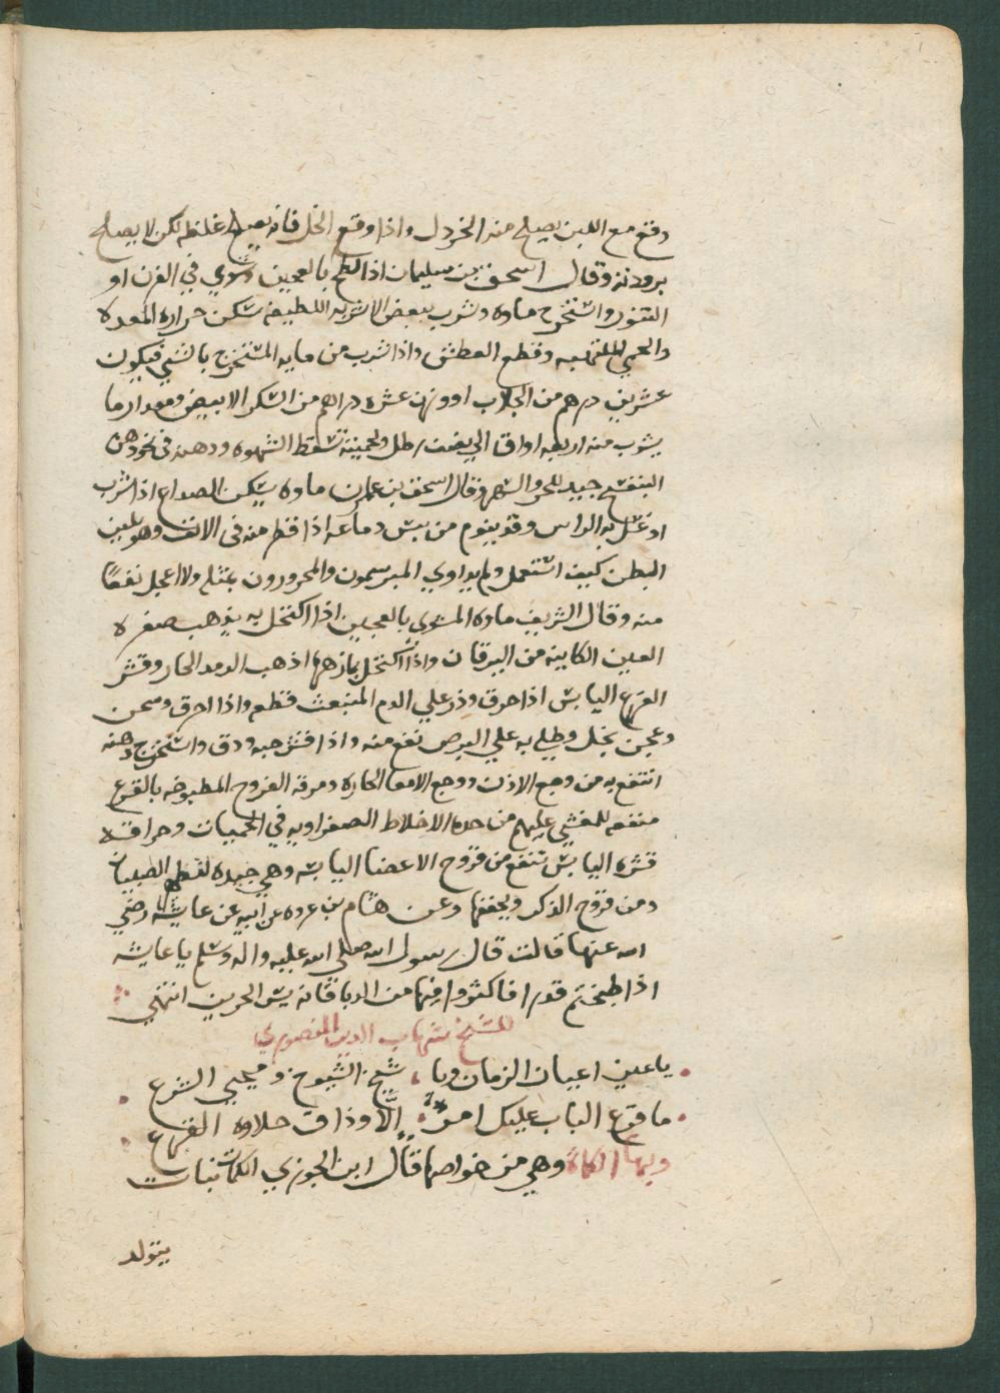 وقع مع اللبن يصلح منه الخردل واذا وقع الخل فانه يصلح غلظه لكن لا يصلح
برودته وقال اسحق بن سليمان اذا لطخ بالعجين وشوي في الفرن او
التنور واستخرج ماوه وشرب ببعض الاشربه اللطيفه سكن حراره المعده
والحمي الملتهبه وقطع العطش واذا شرب من مايه المستخرج بالشي فيكون
عشرين درهم من الجلاب او وزن عشره دراهم من السكر الابيض ومقدار ما
يشرب منه اربعه اواق الي نصف رطل وخميته تسقط الشهوه ودهنه في نحو دهن
البنفسج جيد للحر والسهر وقال اسحق بن عمران ماوه يسكن الصداع اذا شرب
او غسل به الراس وقد ينوم من يبس دماغه اذا قطر منه في الانف وهو يلين
البطن كيف استعمل ولم يداوي المبرسمون والمحرورون بمثله ولا اعجل نفعًا
منه وقال الشريف ماوه المشوي بالعجين اذا اكتحل به يذهب صفره
العين الكاينه من اليرقان واذا اكتحل بماء زهرها اذهب الرمد الحار وقشر
القرع اليابس اذا احرق وذر علي الدم المنبعث قطعه واذا احرق وسحن
وعجن بخل وطلي به علي البرص نفع منه واذا قشر حبه ودق واستخرج دهنه
انتفع به من وجع الاذن ووجع الامعا الحاره ومرقه الفروج المطبوخه بالقرع
منفعه للغشي عليهم من حده الاخلاط الصفراويه في الحميات وحراقه
قشره اليابس تنفع من قروح الاعضا اليابسه وهي جيده لقطع
ومن قروح الذكر ويجففها وعن هشام بن عروه عن ابيه عن عايشه رضي
الله عنها قالت قال رسول الله صلي الله عليه واله وسلم يا عايشه
اذا طبختم قدرا فاكثروا فيها من الدبا فانه يسر الحزين انتهي
للشيخ شهاب الدين المنصوري
يا عين اعيان الزمان ويا شيخ الشيوخ ومحيي الشرع
ما قرع الباب عليك امرء الّا وذاق حلاوه القرع
ومنها الكماة وهي من خواصها قال ابن الجوزي الكماة نبات
يتولد